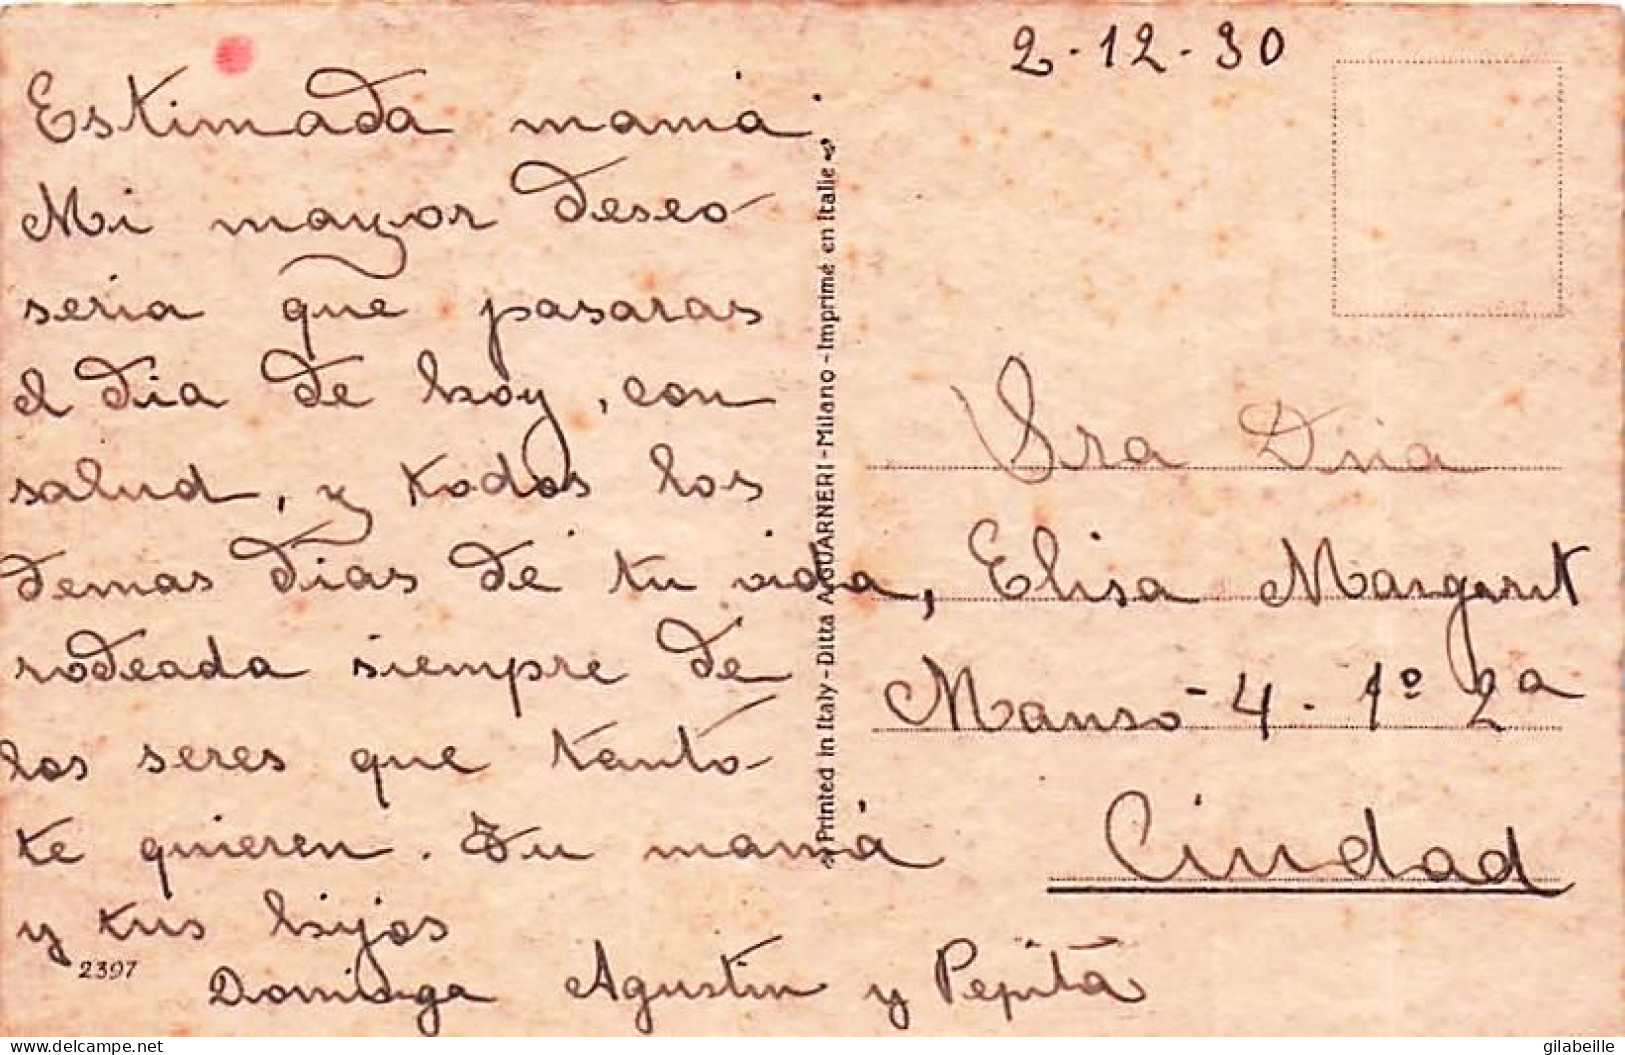 2-12-30
Estimada mamá
Mi mayor deseo
seria que pasaras
el dia de hoy, con
salud, y todos los
demas dias de tu vida,
rodeada siempre de
los seres que tanto
te quieren. Tu mamá
y tus hijos
Dominga Agustin y Pepita
2397
Printed in Italy - Ditta A. GUARNERI - Milano - Imprimé en Italie
Sra Dña
Elisa Margarit
Manso - 4 - 1º 2ª
Ciudad
https://www.delcampe.net
gilabeille